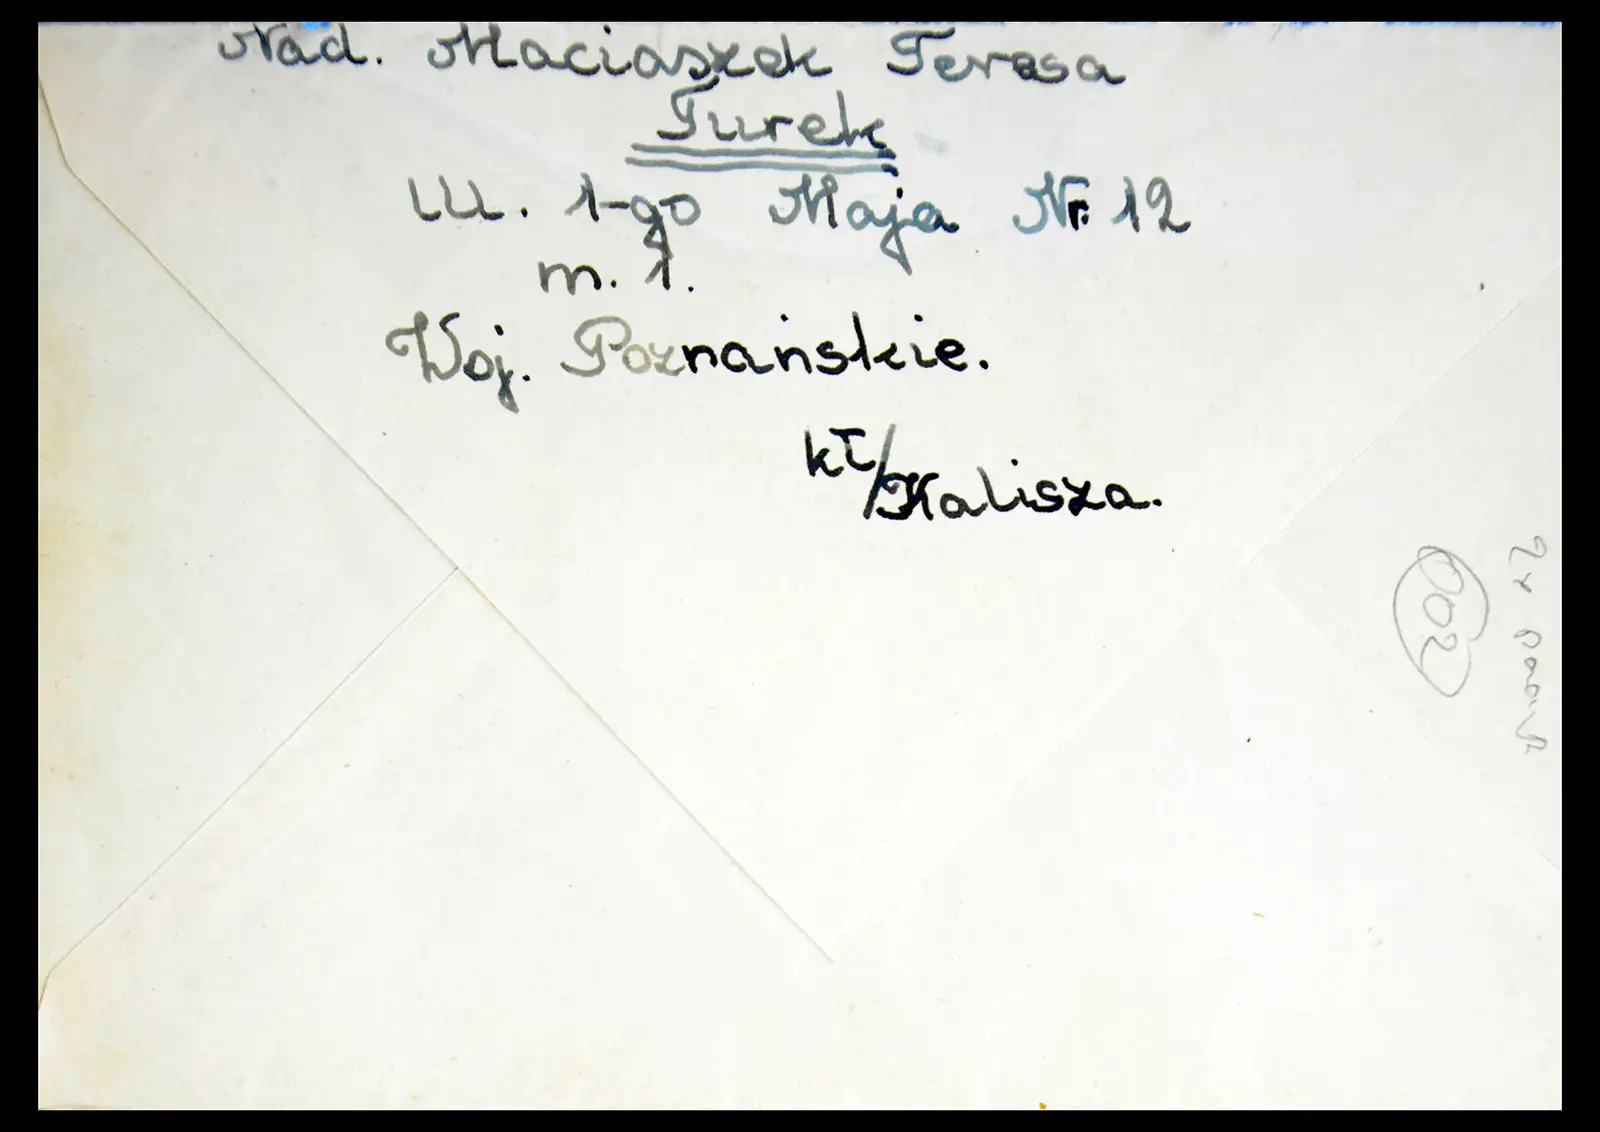 Nad. Maciaszek Teresa
Turek
Ul. 1-go Maja Nr. 12
m. 1.
Woj. Poznańskie.
kł/Kalisza.
2x
002